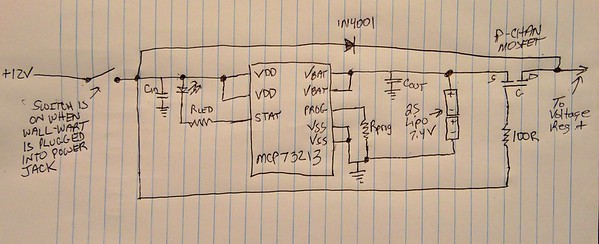 1N4001
P-CHAN
MOSFET
+12V
SWITCH IS
ON WHEN
WALL-WART
IS PLUGGED
INTO POWER
JACK
Cin
RLED
VDD
VDD
STAT
VBAT
VBAT
PROG
VSS
VSS
MCP73213
Rprog
COUT
2S
LiPO
7.4V
+
-
+
-
S
D
G
100R
To
Voltage
Reg